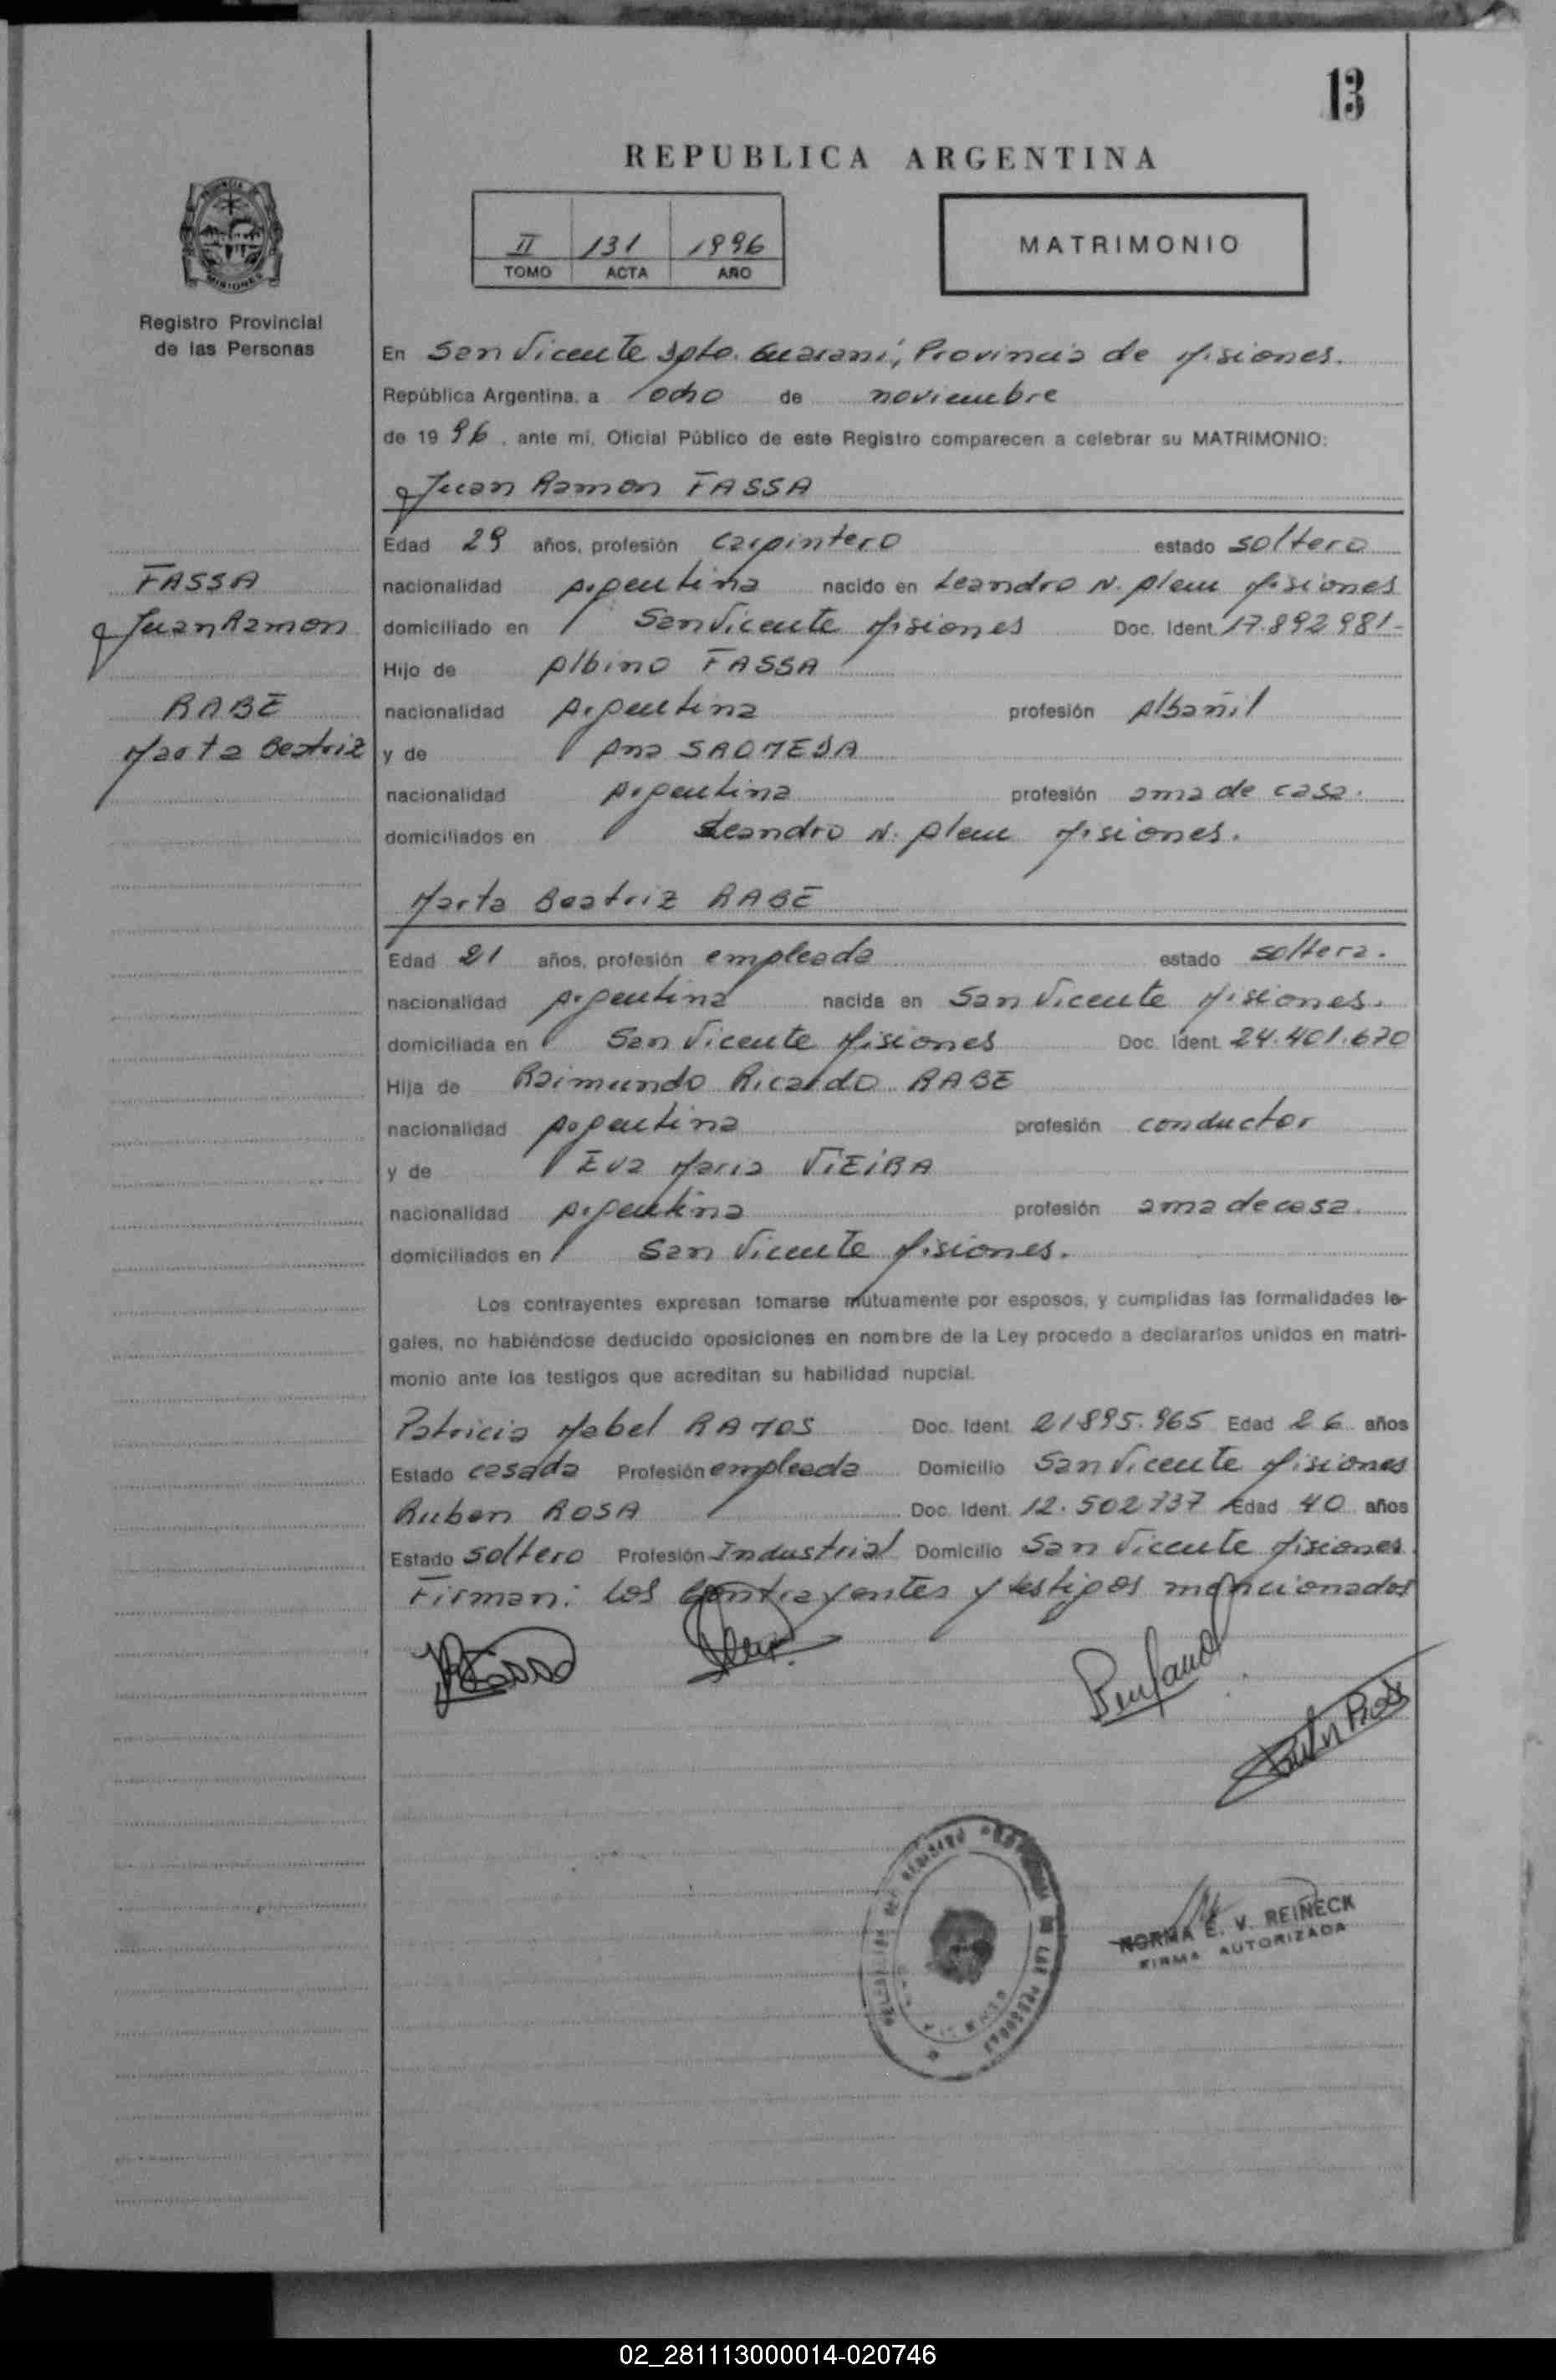 13
REPUBLICA ARGENTINA
II 131 1996
TOMO ACTA AÑO
MATRIMONIO
Registro Provincial
de las Personas
En San Vicente Dpto. Guaraní, Provincia de Misiones.
República Argentina, a ocho de noviembre
de 19 96, ante mí, Oficial Público de este Registro comparecen a celebrar su MATRIMONIO:
Juan Ramon FASSA
Edad 29 años, profesión carpintero estado soltero
FASSA
nacionalidad Argentina nacido en Leandro N. Alem Misiones
Juan Ramon
domiciliado en San Vicente Misiones Doc. Ident. 17.892.981-
Hijo de Albino FASSA
RABE
nacionalidad Argentina profesión Albañil
Marta Beatriz
y de Ana
nacionalidad Argentina profesión ama de casa.
domiciliados en Leandro N. Alem Misiones.
Marta Beatriz RABE
Edad 21 años, profesión empleada estado soltera.
nacionalidad Argentina nacida en San Vicente Misiones.
domiciliada en San Vicente Misiones Doc. Ident. 24.401.670
Hija de Raimundo Ricardo RABE
nacionalidad Argentina profesión conductor
y de Eva Maria VIEIRA
nacionalidad Argentina profesión ama de casa.
domiciliados en San Vicente Misiones.
Los contrayentes expresan tomarse mutuamente por esposos, y cumplidas las formalidades le-
gales, no habiéndose deducido oposiciones en nombre de la Ley procedo a declararlos unidos en matri-
monio ante los testigos que acreditan su habilidad nupcial.
Patricia Mabel RAMOS Doc. Ident. 21895.965 Edad 26 años
Estado casada Profesión empleada Domicilio San Vicente Misiones
Ruben ROSA Doc. Ident. 12.502737 Edad 40 años
Estado soltero Profesión Industrial Domicilio San Vicente Misiones.
Firman: los contrayentes y testigos mencionados
NORMA E. V. REINECK
FIRMA AUTORIZADA
02_281113000014-020746